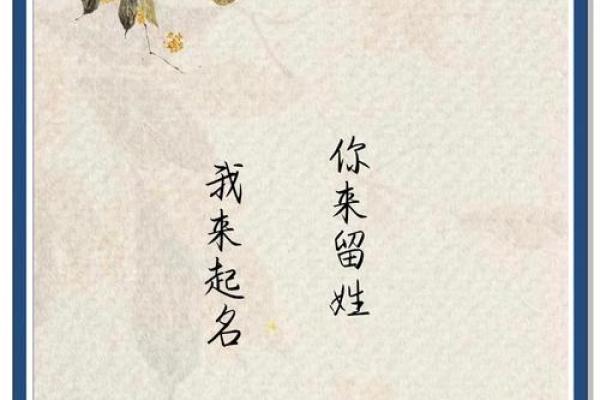 你来留姓
我来起名